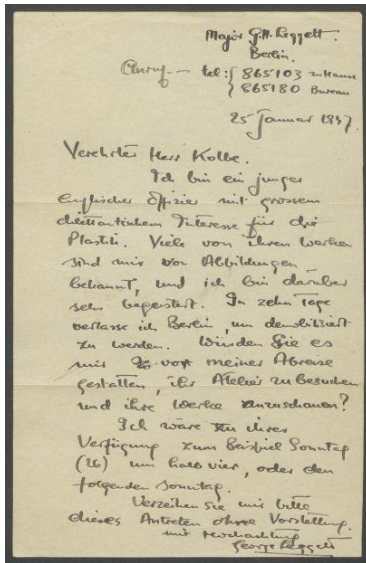 Major G.H. Leggett.
Berlin.
Anruf - tel: 865103 zu Hause
865180 Bureau
25 Januar 1947.
Verehrter Herr Kolbe.
Ich bin ein junger
englischer Offizier mit grossem
dilettantischem Interesse für die
Plastik. Viele von ihren werken
sind mir von Abbildungen
bekannt, und ich bin darüber
sehr begeistert. In zehn Tage
verlasse ich Berlin, um demobilisiert
zu werden. Würden Sie es
mir vor meiner Abreise
gestatten, ihr Atelier zu besuchen
und ihre Werke anzuschauen?
Ich wäre zu ihrer
Verfügung zum Beispiel Sonntag
(26) um halb vier, oder den
folgenden Sonntag.
Verzeihen Sie mir bitte
dieses Antreten ohne Vorstellung.
mit Hochachtung
George Leggett